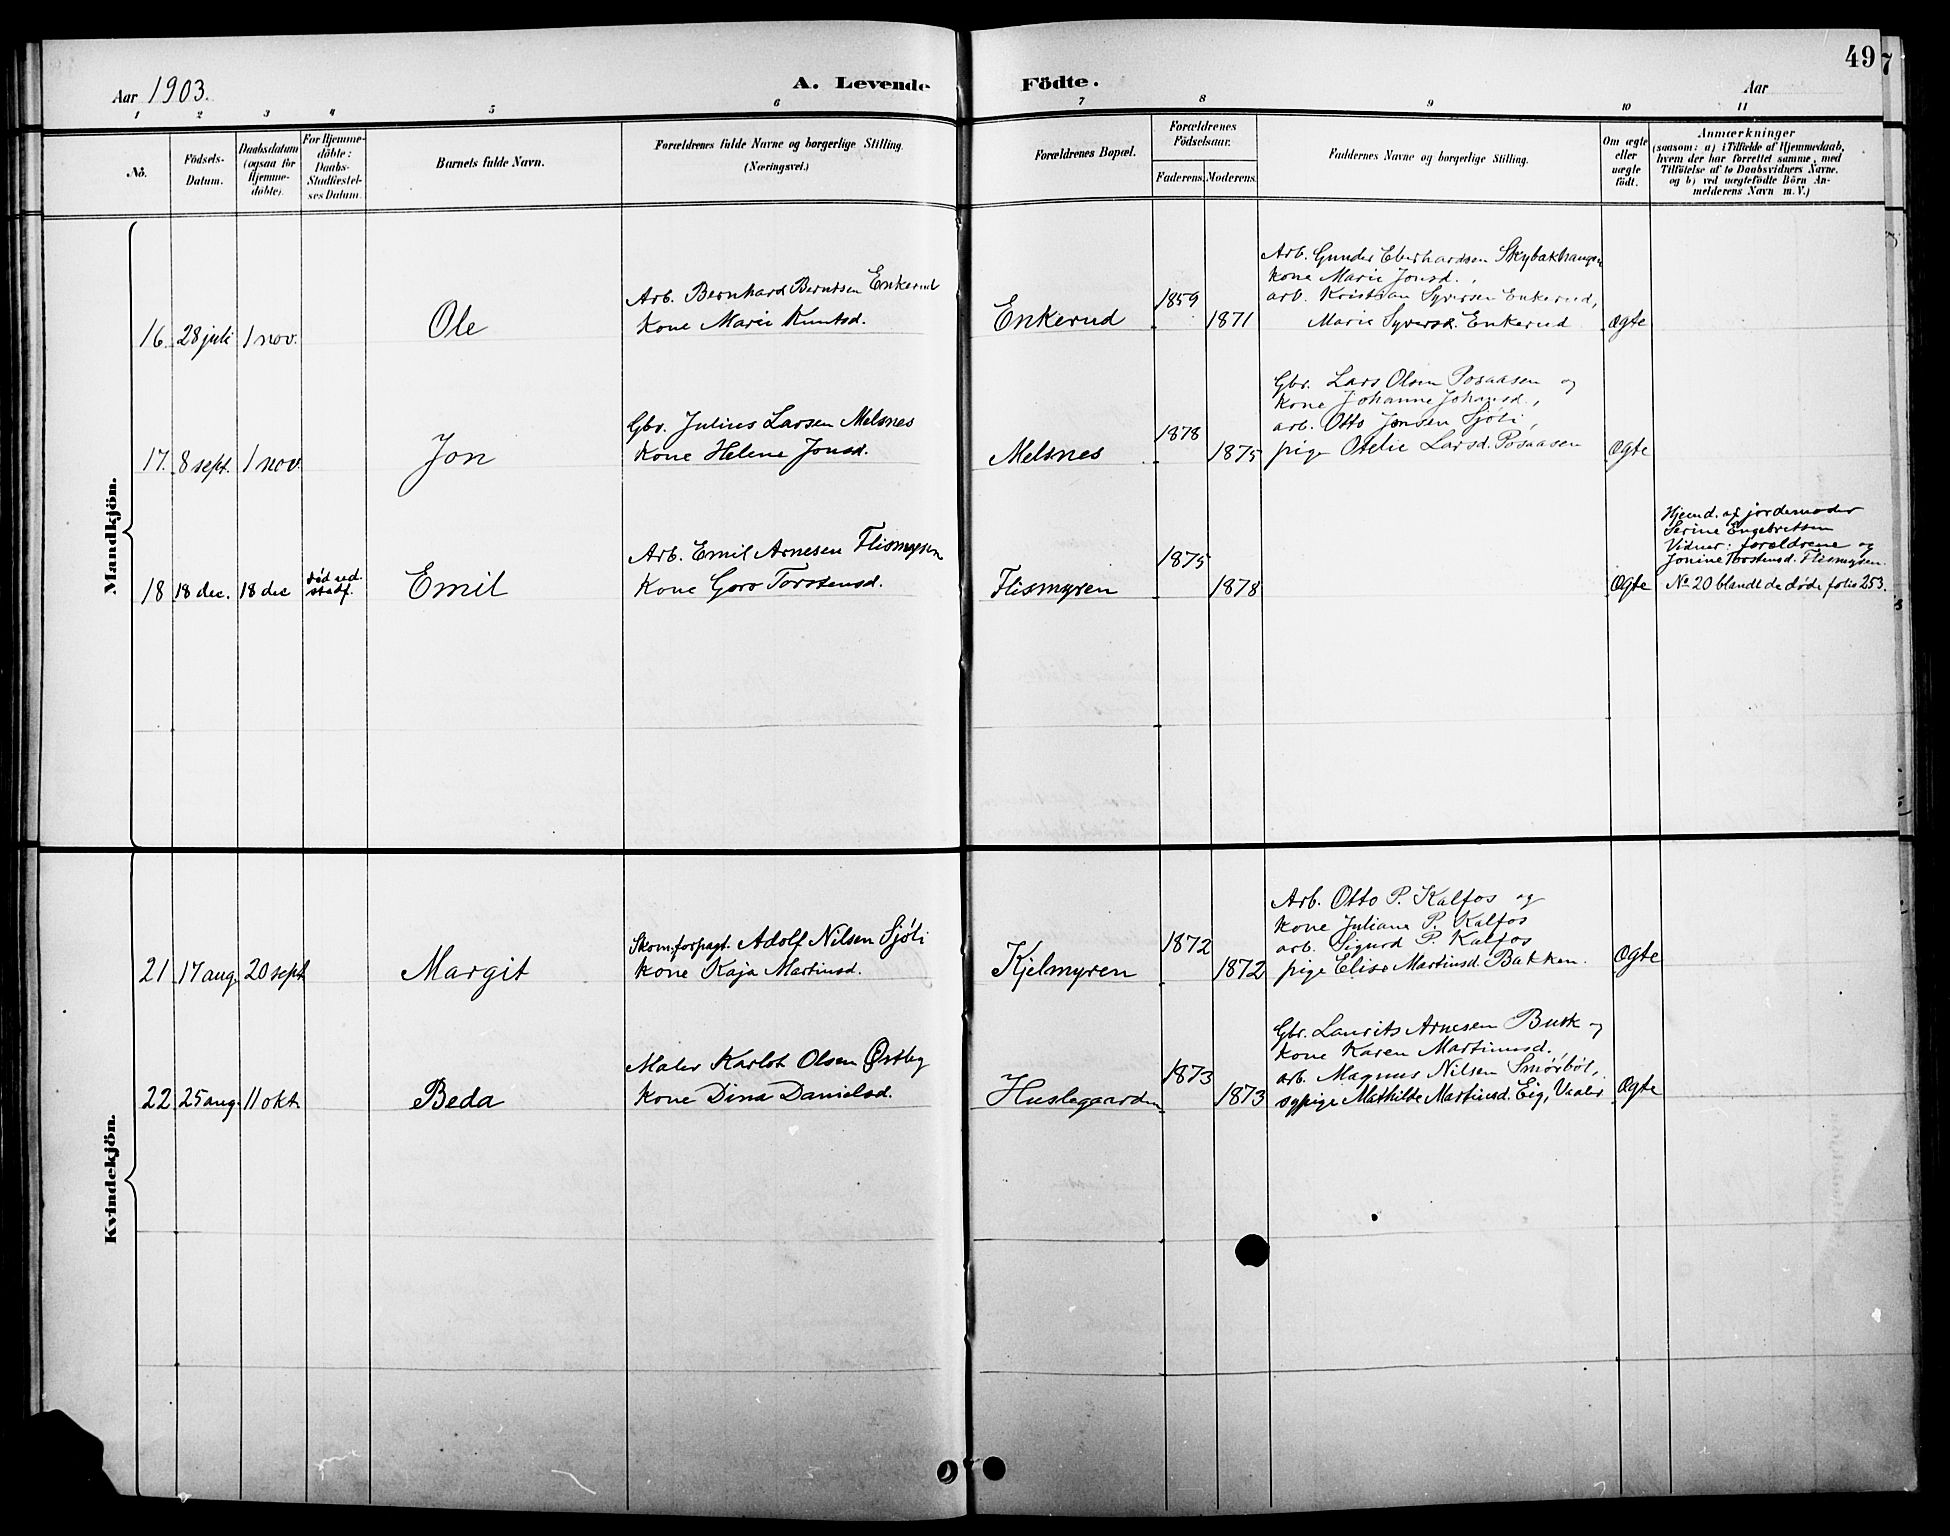 49
7
Aar 1903.
A. Levende Födte.
Aar
1 2 3 4 5 6 7 8 9 10 11
No.
Födsels-
Datum.
Daabsdatum
(ogsaa for
Hjemme-
döbte).
For Hjemme-
döbte:
Daabs-
Stadfæstel-
ses Datum.
Barnets fulde Navn.
Forældrenes fulde Navne og borgerlige Stilling.
(Næringsvei.)
Forældrenes Bopæl.
Forældrenes
Födselsaar.
Faderens. Moderens.
Faddernes Navne og borgerlige Stilling.
Om ægte
eller
uægte
födt.
Anmærkninger
(saasom: a) i Tilfælde af Hjemmedaab,
hvem der har forrettet samme, med
Tilföielse af to Daabsvidners Navne.
og b) ved uægtefödte Börn An-
melderens Navn m. V.)
Mandkjön.
16. 28 juli 1 nov.
Ole
Arb. Bernhard Berntsen Enkerud
Kone Marie Knutsd.
Enkerud
1859
1871
Arb. Gunder Eberhardsen Skybakhaugen
kone Marie Jonsd.,
arb. Kristian Syversen Enkerud,
Marie Syversd. Enkerud
Ægte
17. 8 sept. 1 nov
Jon
Gbr. Julius Larsen Melsnes
Kone Helene Jonsd.
Melsnes
1878
1875
Gbr. Lars Olsen Posaasen og
kone Johanne Johansd.,
arb. Otto Jonsen Sjöli,
pige Otelie Larsd. Posaasen
Ægte
18 18 dec. 18 dec
död ved.
stadf.
Emil
Arb. Emil Arnesen Flismyren
Kone Goro Torstensd.
Flismyren
1875
1878
Ægte
Hjemd. af jordemoder
Serine Engebretsen
Vidner: foreldrene og
Jonine Torstensd. Flismyren.
No 20 blandt de døde folio 253.
Kvindekjön.
21 17 aug. 20 sept
Margit
Skom.forpagt. Adolf Nilsen Sjöli
Kone Kaja Martinsd.
Kjelmyren
1872
1872
Arb. Otto P. Kalfos og
kone Juliane P. Kalfos
arb. Sigurd P. Kalfos
pige Elise Martinsd. Bakken.
Ægte
22 25 aug. 11 okt.
Beda
Maler Karlot Olsen Østby
Kone Dina Danielsd.
Huslegaarden
1873
1873
Gbr. Laurits Arnesen Busk og
kone Karen Martinusd.
arb. Magnus Nilsen Smörböl,
sypige Mathilde Martinsd. Eig, Vaaler
Ægte